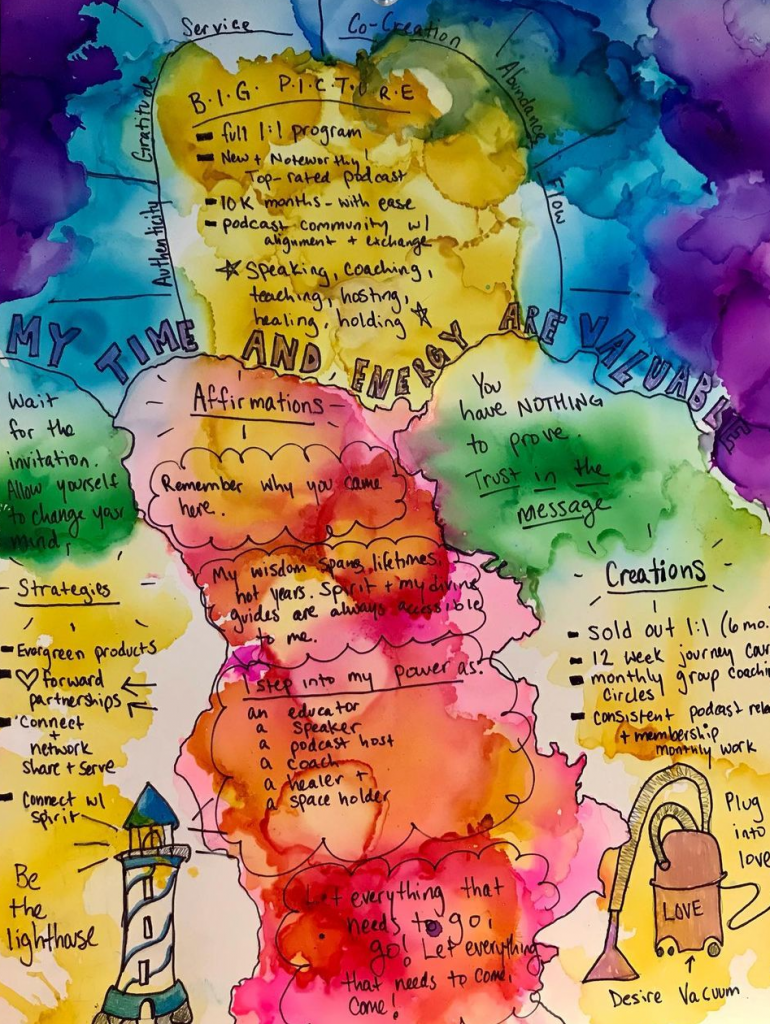 Service
Co-Creation
Gratitude
Abundance
Authenticity
Flow
B.I.G. P.I.C.T.U.R.E
full 1:1 program
New + Noteworthy!
Top-rated podcast
10K months - with ease
podcast community w/
alignment + exchange
Speaking, coaching,
teaching, hosting,
healing, holding
MY TIME AND ENERGY ARE VALUABLE
Wait
for the
invitation.
Allow yourself
to change your
mind,
Affirmations
Remember why you came
here.
My wisdom spans lifetimes,
not years. Spirit + my divine
guides are always accessible
to me.
I step into my power as:
an educator
a speaker
a podcast host
a coach
a healer +
a space holder
Let everything that
needs to go,
go! Let everything
that needs to come,
come!
You
have NOTHING
to prove.
Trust in the
message
Strategies
Evergreen products
♡ forward
partnerships
Connect
+
network
share + serve
Connect w/
spirit
Be
the
lighthouse
Creations
sold out 1:1 (6 mo.
12 week journey
monthly group
circles
consistent podcast
+ membership
monthly work
Plug
into
love
LOVE
Desire Vacuum